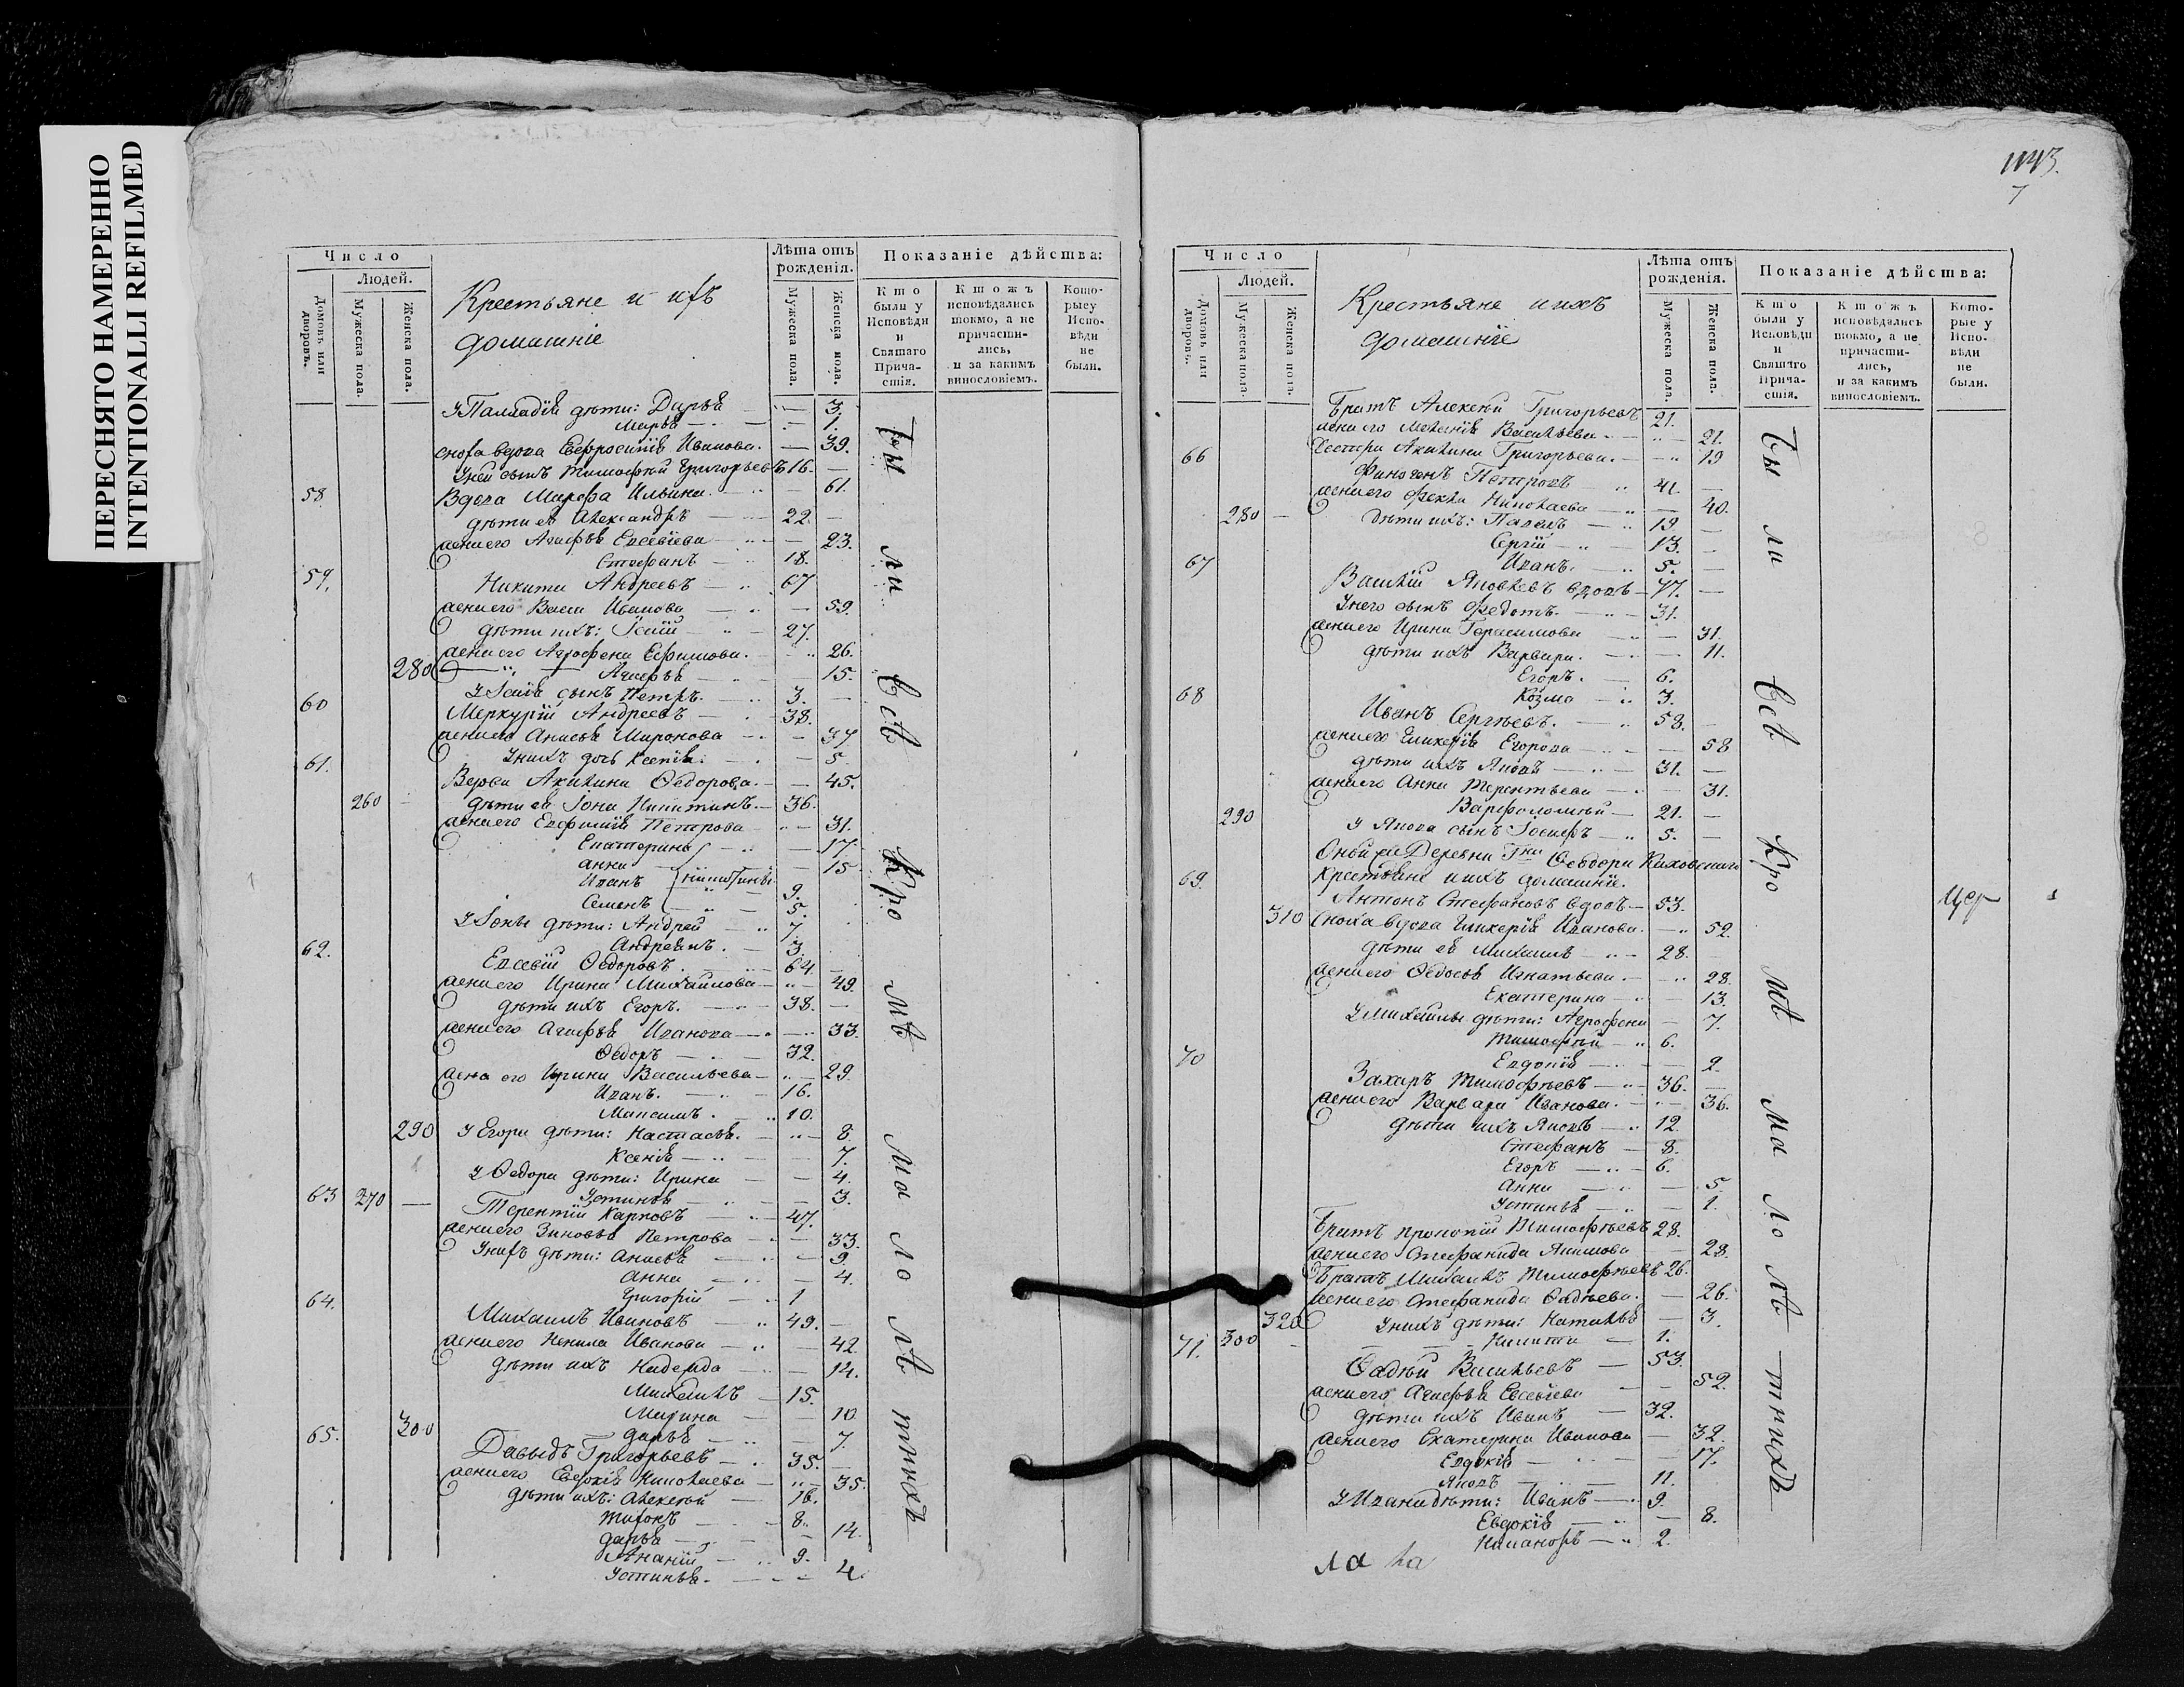 ПЕРЕСНЯТО НАМЕРЕННО
INTENTIONALLI REFILMED
Число
Людей.
Домовъ или дворовъ.
Мужеска пола.
Женска пола.
Крестьяне и ихъ
домашніе
Лѣта отъ рожденія.
Мужеска пола.
Женска пола.
Показаніе дѣйства:
Кто были у Исповѣди и Святаго Причастія.
Ктожъ исповѣдались токмо, а не причастились, и за какимъ винословіемъ.
Которыеу Исповѣди не были.
У Палладія дѣти: Дарья 3.
Марѳа 1.
сноха вдова Евфросинія Иванова. 39.
У ней сынъ Тимофей Григорьевъ 16.
58 Вдова Марфа Ильина. 61.
дѣти ея Александръ 22.
жена его Агафья Евсевіева 23.
Стефанъ 18.
59. Никита Андреевъ 67
жена его Васса Иванова 59.
дѣти ихъ: Исаія 27.
жена его Агрофена Ефимова. 26.
280 Агафья 15.
У Исаія сынъ Петръ. 3.
60 Меркурій Андреевъ 38.
жена его Анисья Миронова 37
У нихъ дочь Ксенія. 5.
61. Вдова Акилина Ѳедорова. 45.
260 дѣти ея Іона Никитинъ. 36.
жена его Евфимія Петрова 31.
Екатерина 17.
анна 15
Иванъ Никитины 9.
Семенъ 5.
У Іоны дѣти: Андрей 7.
Андреянъ. 3.
62. Евсевій Ѳедоровъ. 64.
жена его Ирина Михайлова 49.
дѣти ихъ Егоръ. 38.
жена его Агафья Иванова 33.
Ѳедоръ 32.
жена его Ирина Васильева 29.
Иванъ. 16.
Максимъ. 10.
290 У Егора дѣти: Настасья. 8.
Ксенія 7.
У Ѳедора дѣти: Ирина 4.
Устинья 3.
63 270 Терентій Карповъ 47.
жена его Зиновья Петрова 33.
У нихъ дѣти: Анисья 9.
Анна 4.
Григорій 1
64. Михаилъ Ивановъ 49.
жена его Ненила Иванова 42.
дѣти ихъ Надежда 14.
Михаилъ 15.
Марина 10
300 дарья 7.
65. Давыдъ Григорьевъ 35.
жена его Евдокія Николаева 35.
дѣти ихъ: Алексей 16.
Тихонъ 8.
дарья 14.
Ананій 9.
Устинья. 4.
Бы ли всѣ Кро мѣ ма ло лѣ тнихъ
1143.
7
Число
Людей.
Домовъ или дворовъ.
Мужеска пола.
Женска пола.
Крестьяне и ихъ
домашніе
Лѣта отъ рожденія.
Мужеска пола.
Женска пола.
Показаніе дѣйства:
Кто были у Исповѣди и Святаго Причастія.
Ктожъ исповѣдались токмо, а не причастились, и за какимъ винословіемъ.
Которые у Исповѣди не были.
Братъ Алексѣй Григорьевъ 21.
жена его Меланія Васильева. 21.
Сестра Акилина Григорьева. 19
66 Финогенъ Петровъ 41.
жена его Фекла Николаева 40.
280 Дѣти ихъ: Павелъ 19.
Сергій 13.
Иванъ. 5.
67 Василій Яковлевъ вдовъ 77.
У него сынъ Федотъ. 31.
жена его Ирина Герасимова 31.
дѣти ихъ Варвара. 11.
Егоръ. 6.
Козма 3.
68 Иванъ Сергѣевъ. 58.
жена его Гликерія Егорова 58
дѣти ихъ Яковъ 31.
жена его Анна Терентьева 31.
290 Варфоломѣй 21.
У Якова сынъ Іосифъ 5.
Оной же Деревни Гна Ѳеодора Каховскаго
Крестьяне и ихъ домашніе.
69. Антонъ Стефановъ вдовъ 53.
310 Сноха вдова Гликерія Иванова. 52.
дѣти ея Михаилъ 28.
жена его Ѳедосья Игнатьева. 28.
Екатерина 13.
У Михаилы дѣти: Агрофена 7.
Тимофей 6.
Евдокія 2.
70 Захаръ Тимофѣевъ 36.
жена его Варвара Иванова. 36.
дѣти ихъ Яковъ 12.
Стефанъ 8.
Егоръ 6.
Анна 5.
Устинья 1.
Братъ Прокопій Тимофѣевъ 28.
жена его Стефанида Якимова 28.
Братъ Михаилъ Тимофѣевъ 26.
жена его Стефанида Фадѣева. 26.
320 У нихъ дѣти: Наталья 3.
300 Никита 1.
71. Ѳадѣй Васильевъ 53.
жена его Агафья Евсевіева 52.
дѣти ихъ Иванъ 32.
жена его Екатерина Иванова 32.
Евдокія 17.
Яковъ 11.
У Ивана дѣти: Иванъ 9.
Евдокія 8.
Никаноръ 2.
Бы ли всѣ Кро мѣ ма ло лѣ тнихъ
Цер
ла ла